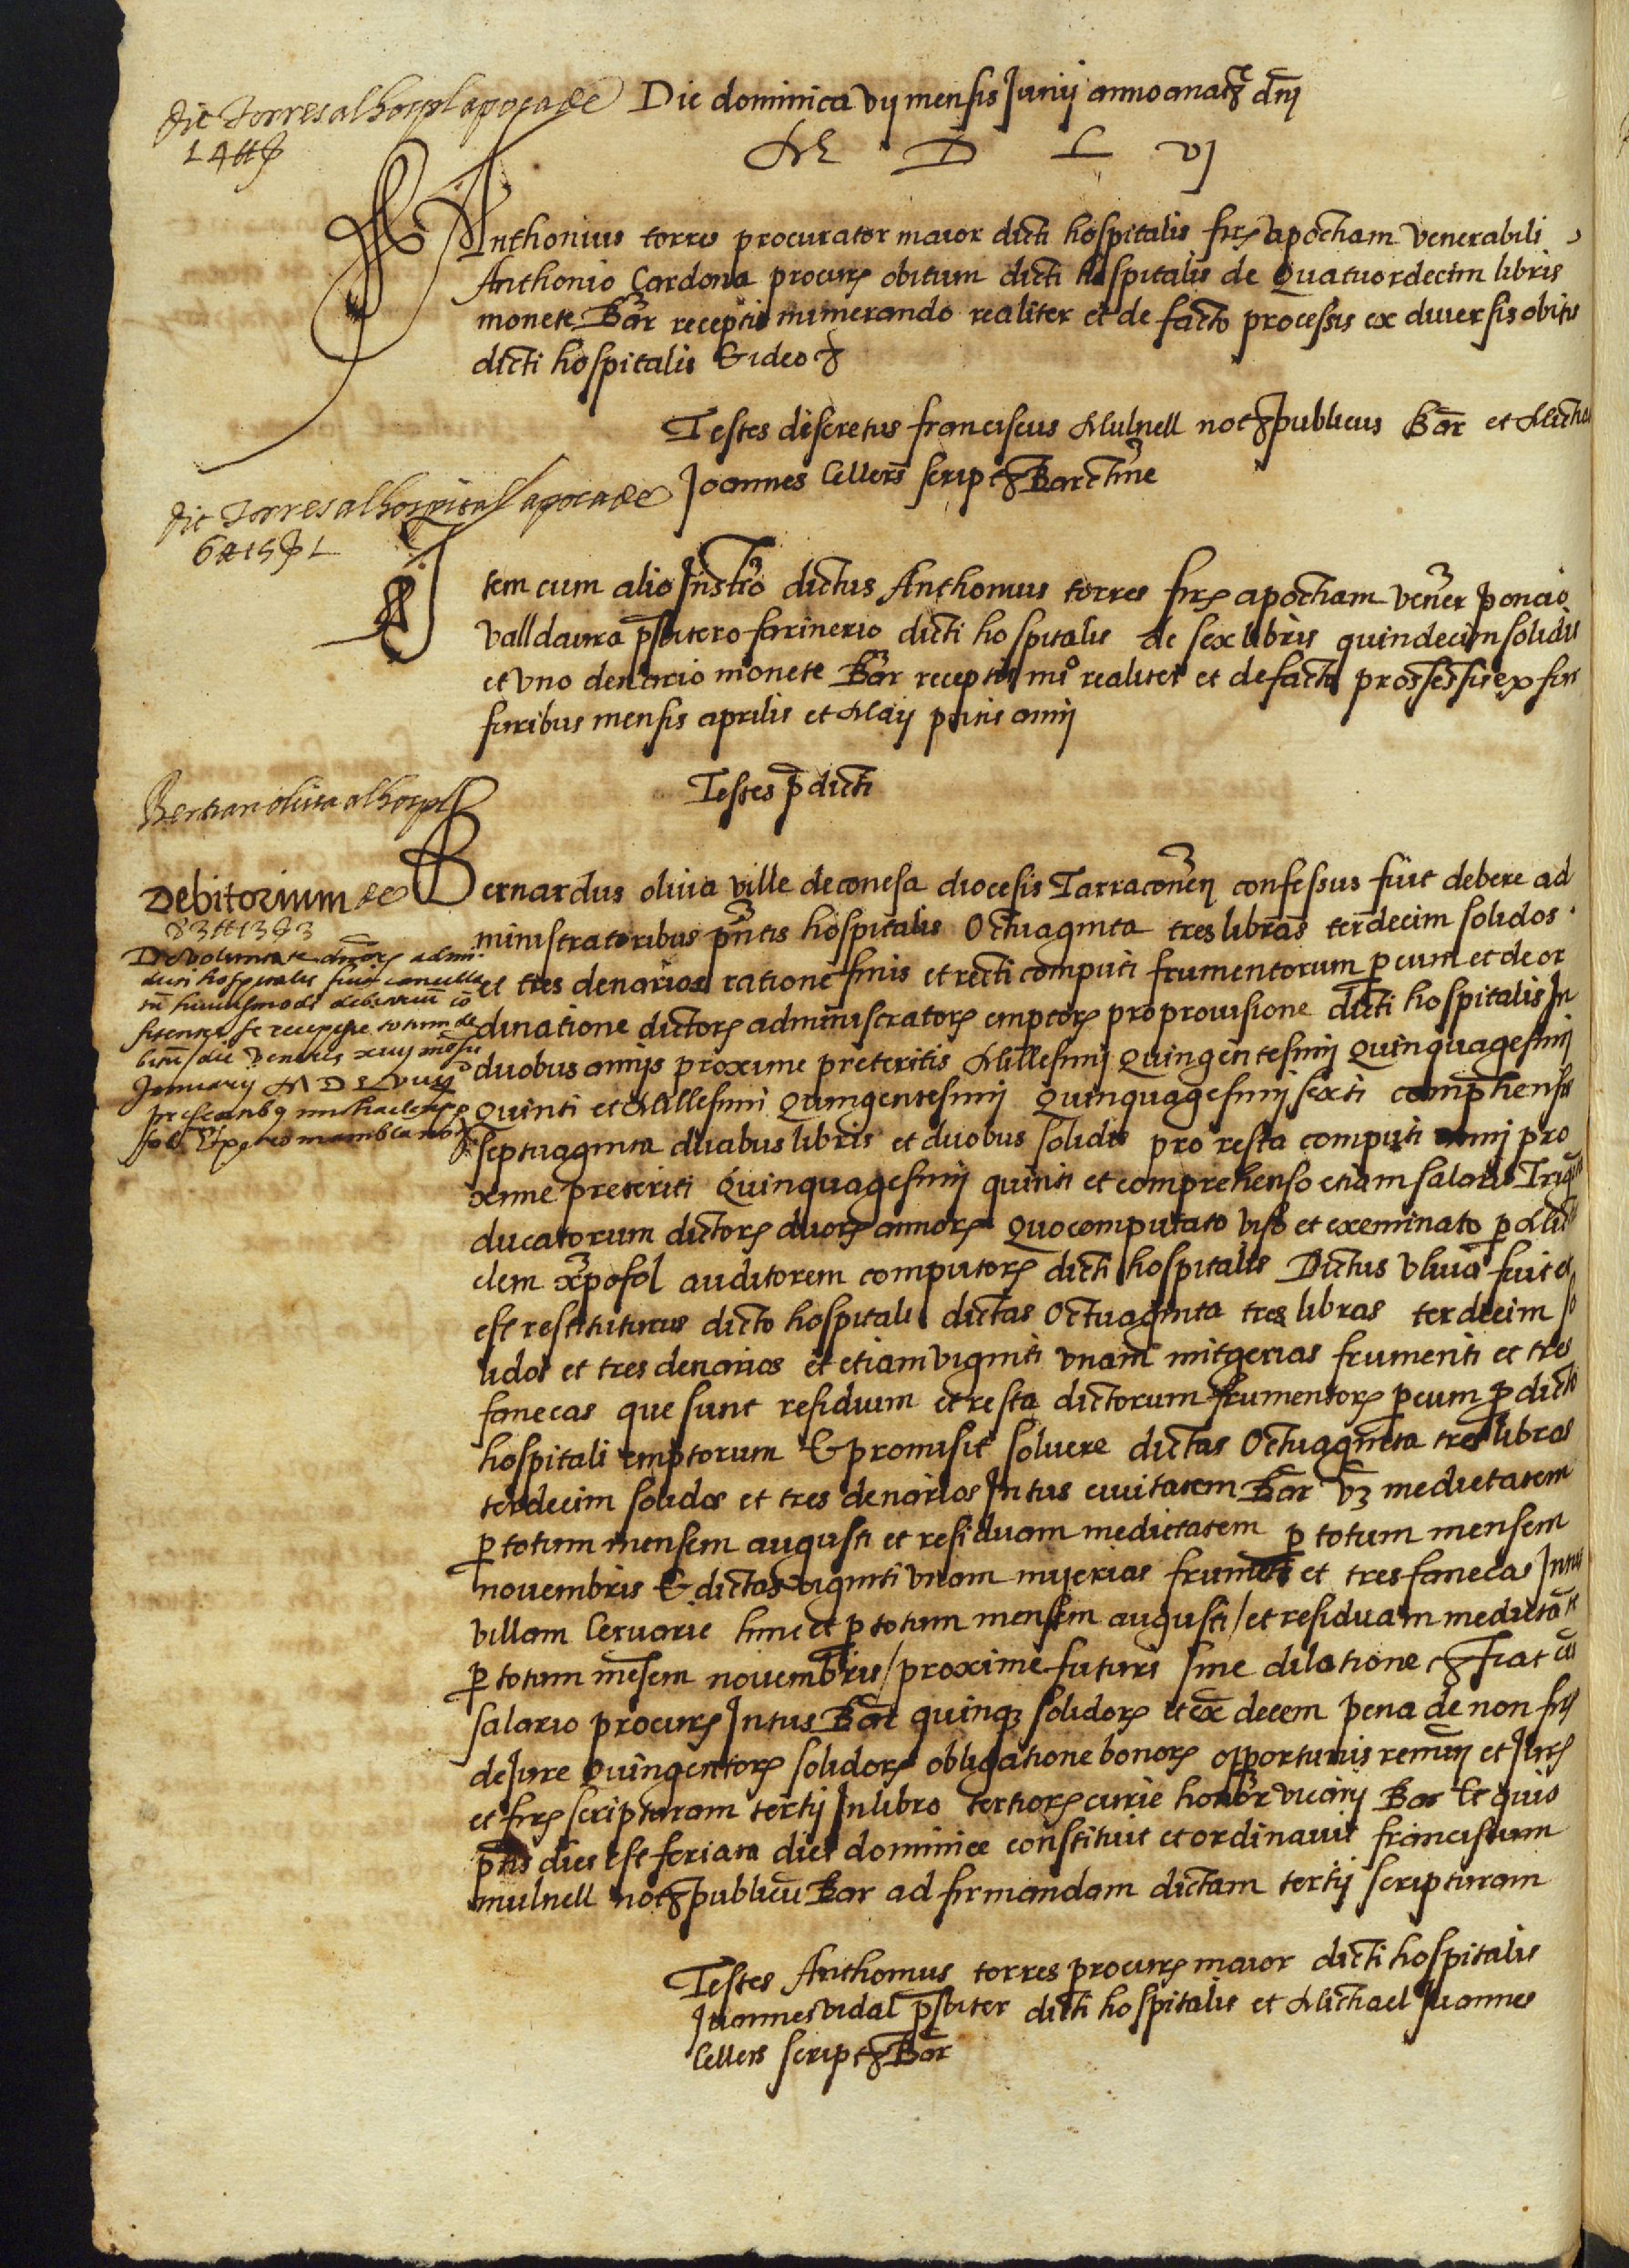 dit Torres al hospl apoca de
14 ℔ ȷ
Die dominica vij mensis Junij anno a natȝ dnj
M D L vj
Anthonius torres procurator maior dicti hospitalis firꝝ apocham venerabili
Anthonio Cardona procurꝝ obituum dicti hospitalis de Quatuordecim libris
monete Bar receptis numerando realiter et de facto processis ex diuersis obitis
dicti hospitalis & ideo ȝ
Testes discretus franciscus Mulnell notȝ publicus Bar et Micha
Joannes Cellers scriptȝ Barctine
dit Torres al hospital apoca de
6 ℔ 15 ẞ 1
Item cum alio Instro dictus Anthonius torres firꝝ apocham vener poncio
valldaura psbitero farinerio dicti hospitalis de sex libris quindecim solidis
et vno denario monete Bar receptis nuo realiter et de facto prossessis ex fur
furibus mensis aprilis et Maij pntis anni
Testes p dicti
Bertran oliua al hospl
Debitorium de
83 ℔ 13 ẞ 3
De voluntate dnorꝝ admi
dicti hospitalis fuit cancella
tu huiusmodi debitoriu co
fitentes se recepisse totum de
bitu / die Veneris xiiij mesis
Januarij M D L viij
presentibꝫ michaele xpo
fol Et petro mamblanch
Bernardus oliua ville de conesa diocesis Tarraconen confessus fuit debere ad
ministratoribus pntis hospitalis Octuaginta tres libras terdecim solidos
et tres denarios ratione finis et recti computi frumentorum p eum et de or
dinatione dictorꝝ administratorꝝ emptorꝝ pro prouisione dicti hospitalis In
duobus annis proxime preteritis Millesimi Quingentesimi Quinquagesimi
Quinti et Millesimi Quingentesimi Quinquagesimi sexti comphensis
septuaginta duabus libris et duobus solidis pro resta computi anni pro
xime preteriti Quinquagesimi quinti et comprehenso etiam salario Triginta
ducatorum dictorꝝ duorꝝ annorꝝ Quo computato viso et exeminato p Mic
elem xpofol auditorem computorꝝ dicti hospitalis Dictus vliua fuit et
est restituturus dicto hospitali dictas Octuaginta tres libras terdecim so
lidos et tres denarios et etiam viginti vnam mitgerias frumenti et tres
fanecas que sunt residuum et resta dictorum frumentorꝝ p eum p dicto
hospitali emptorum & promisit soluere dictas Octuaginta tres libras
terdecim solidos et tres denarios Intus ciuitatem Bar vȝ medietatem
p totum mensem augusti et residuam medietatem p totum mensem
nouembris & dictas viginti vnam mijerias frumeti et tres fanecas Intus
villam Ceruarie hinc et p totum mensem augusti / et residuam medietate
p totum mesem nouembris / proxime futuri sine dilatione ȝ Fiat cu
salario procurꝝ Intus Bar quinqꝫ solidorꝝ et ex decem pena de non firꝝ
de Jure Quingentorꝝ solidorꝝ obligatione bonorꝝ opportunis renun et Jurꝝ
et firꝝ scripturam tertij In libro tertiorꝝ curie honor vicarij Bar Et quia
pns dies est feriata diei dominice constituit et ordinauit franciscum
mulnell notȝ publicu Bar ad firmandam dictam tertij scripturam
Testes Anthonius torres procurꝝ maior dicti hospitalis
Juannes vidal psbiter dicti hospitalis et Michael Juannes
Cellers scriptȝ Bar